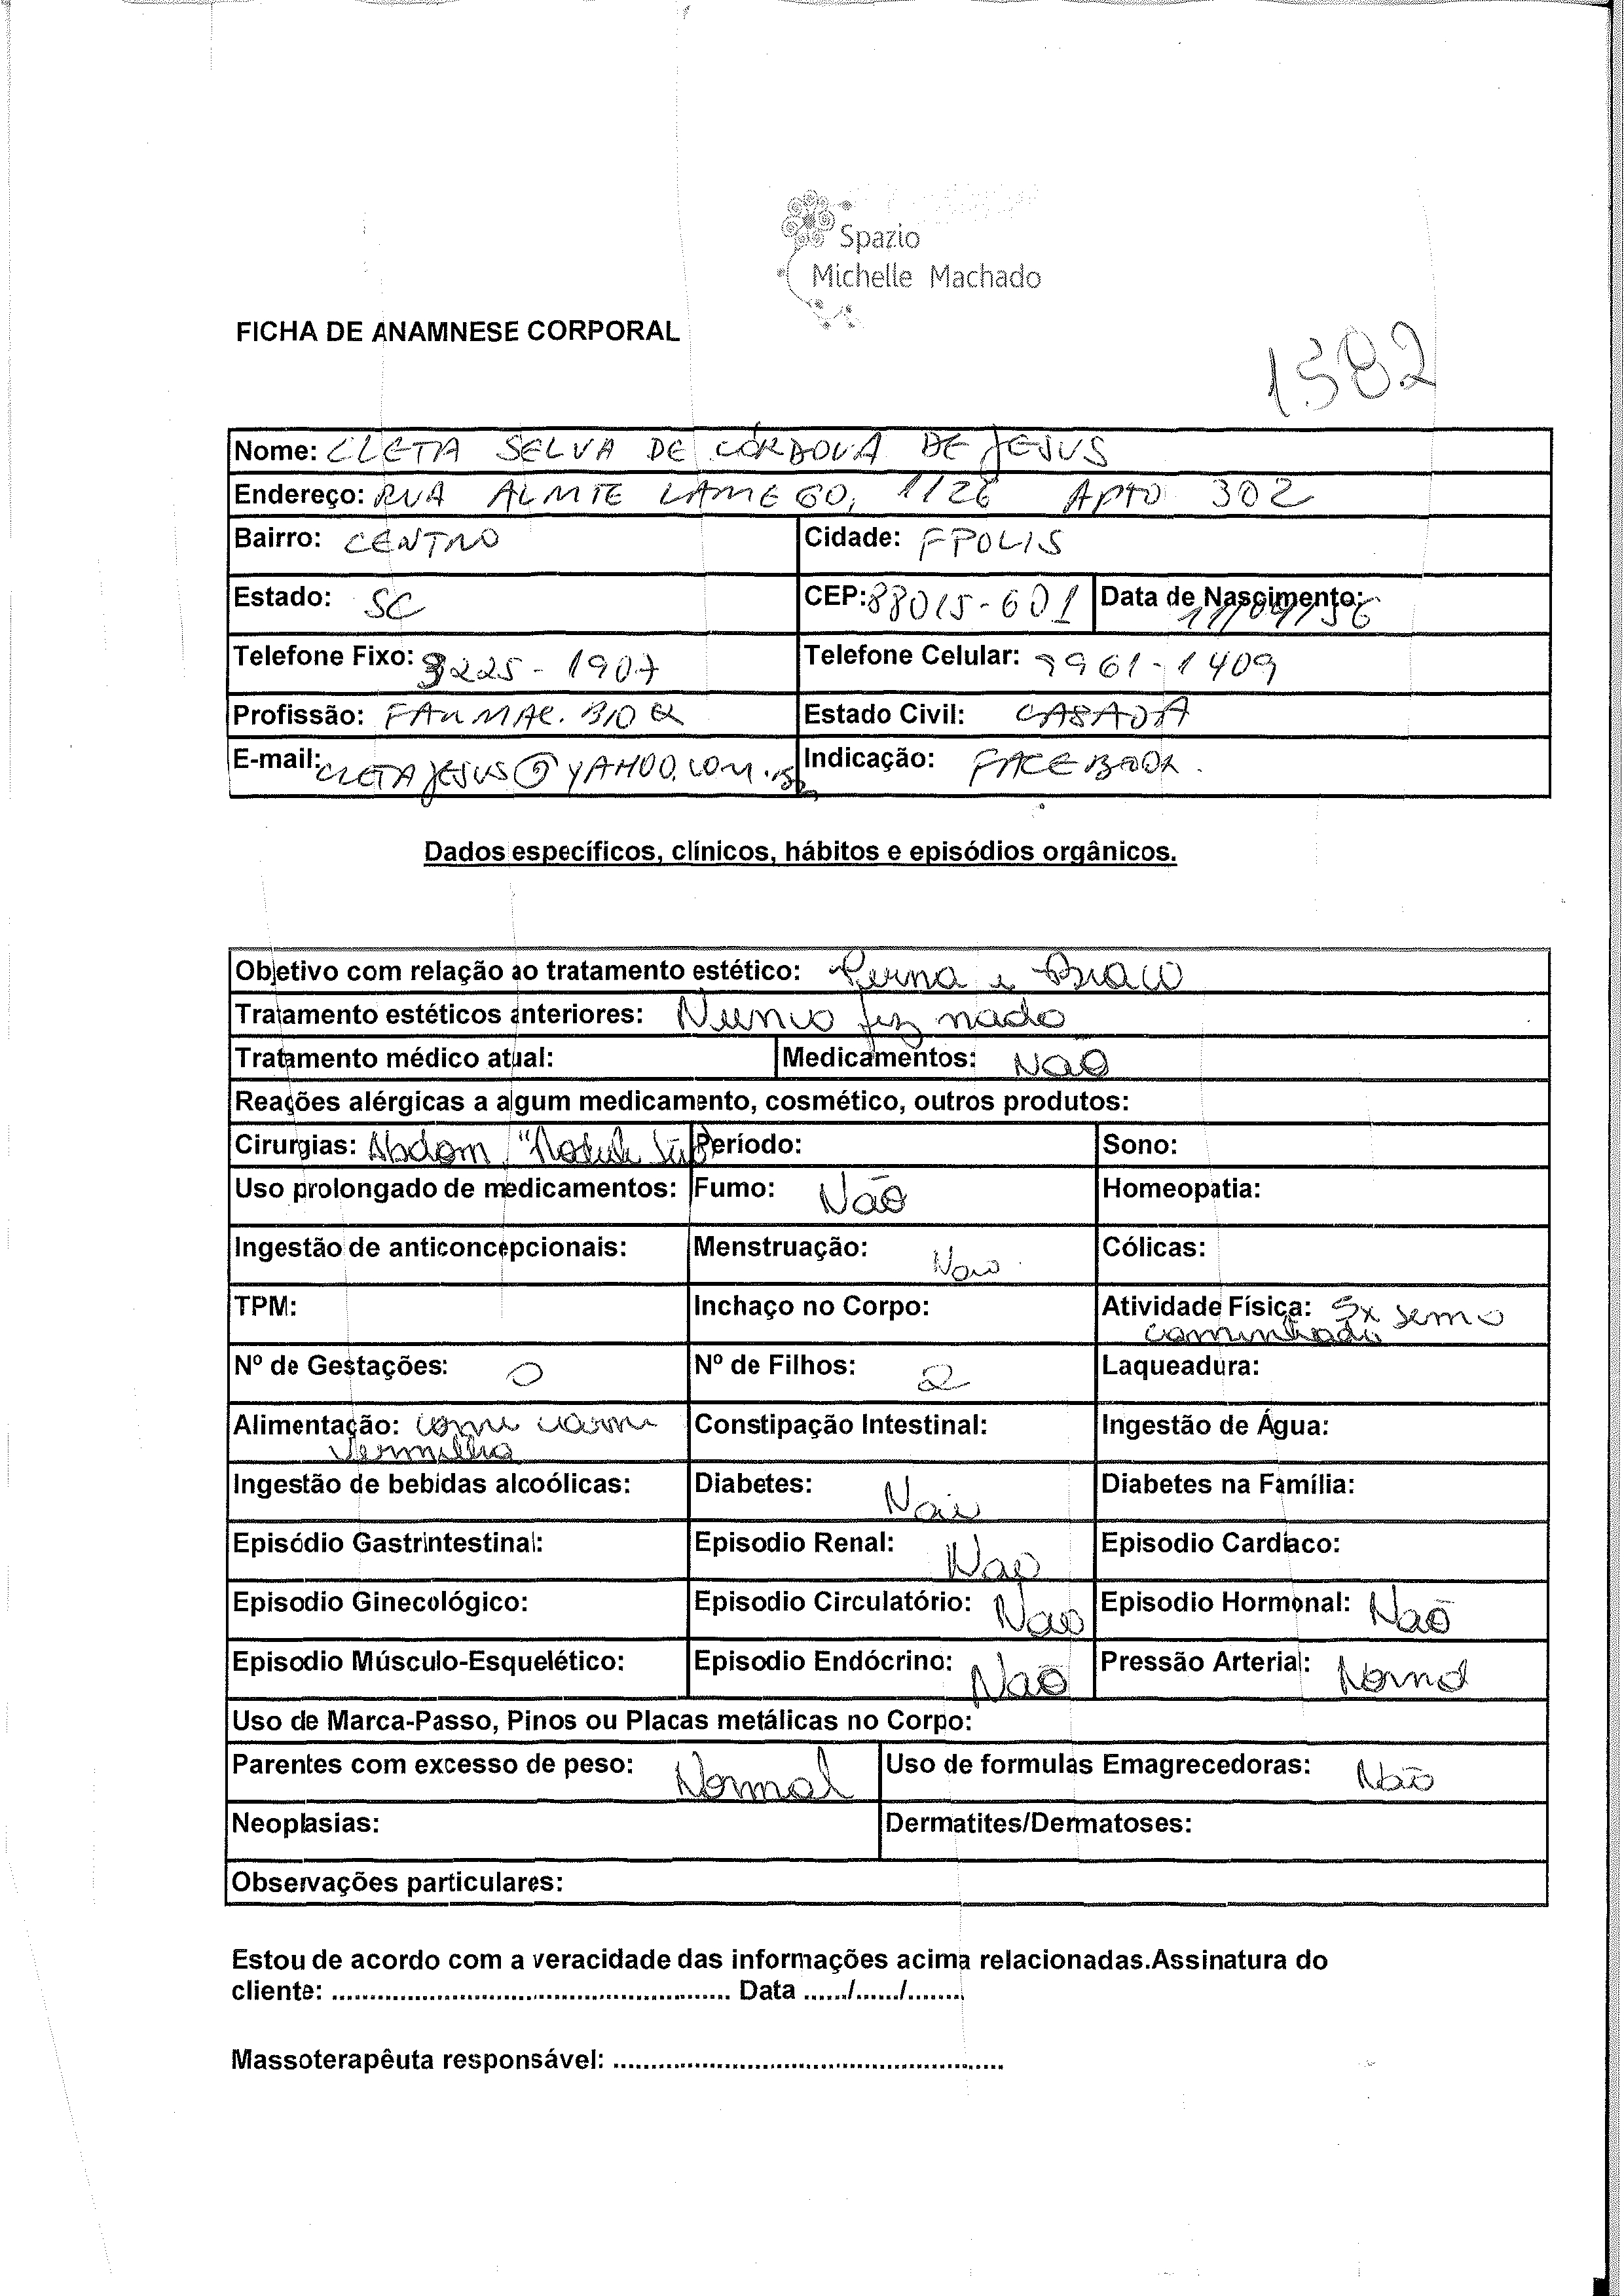 Spazio
Michelle Machado
FICHA DE ANAMNESE CORPORAL
1382
Nome: CLETA SELVA DE CÓRDOVA DE JESUS
Endereço: RUA ALMTE LAMEGO, 1126 APTO 302
Bairro: CENTRO Cidade: FPOLIS
Estado: SC CEP: 88015-601 Data de Nascimento: 11/09/56
Telefone Fixo: 3225-1907 Telefone Celular: 9961-1409
Profissão: FARMAC. BIOQ Estado Civil: CASADA
E-mail: CLETAJESUS@YAHOO.COM.BR Indicação: FACEBOOK.
Dados específicos, clínicos, hábitos e episódios orgânicos.
Objetivo com relação ao tratamento estético: Perna e Braco
Tratamento estéticos anteriores: Nunca fez nada
Tratamento médico atual: Medicamentos: NÃO
Reações alérgicas a algum medicamento, cosmético, outros produtos:
Cirurgias: Abdom, Período: Sono:
Uso prolongado de medicamentos: Fumo: Não Homeopatia:
Ingestão de anticoncepcionais: Menstruação: Nao Cólicas:
TPM: Inchaço no Corpo: Atividade Física: 5x sema
caminhada
Nº de Gestações: 0 Nº de Filhos: 2 Laqueadura:
Alimentação: come carne Constipação Intestinal: Ingestão de Água:
vermelha
Ingestão de bebidas alcoólicas: Diabetes: Nao Diabetes na Família:
Episódio Gastrintestinal: Episodio Renal: Nao Episodio Cardíaco:
Episodio Ginecológico: Episodio Circulatório: Nao Episodio Hormonal: Não
Episodio Músculo-Esquelético: Episodio Endócrino: Não Pressão Arterial: Normal
Uso de Marca-Passo, Pinos ou Placas metálicas no Corpo:
Parentes com excesso de peso: Normal Uso de formulas Emagrecedoras: Não
Neoplasias: Dermatites/Dermatoses:
Observações particulares:
Estou de acordo com a veracidade das informações acima relacionadas.Assinatura do
cliente: ..................................................... Data ....../....../........
Massoterapêuta responsável: ....................................................